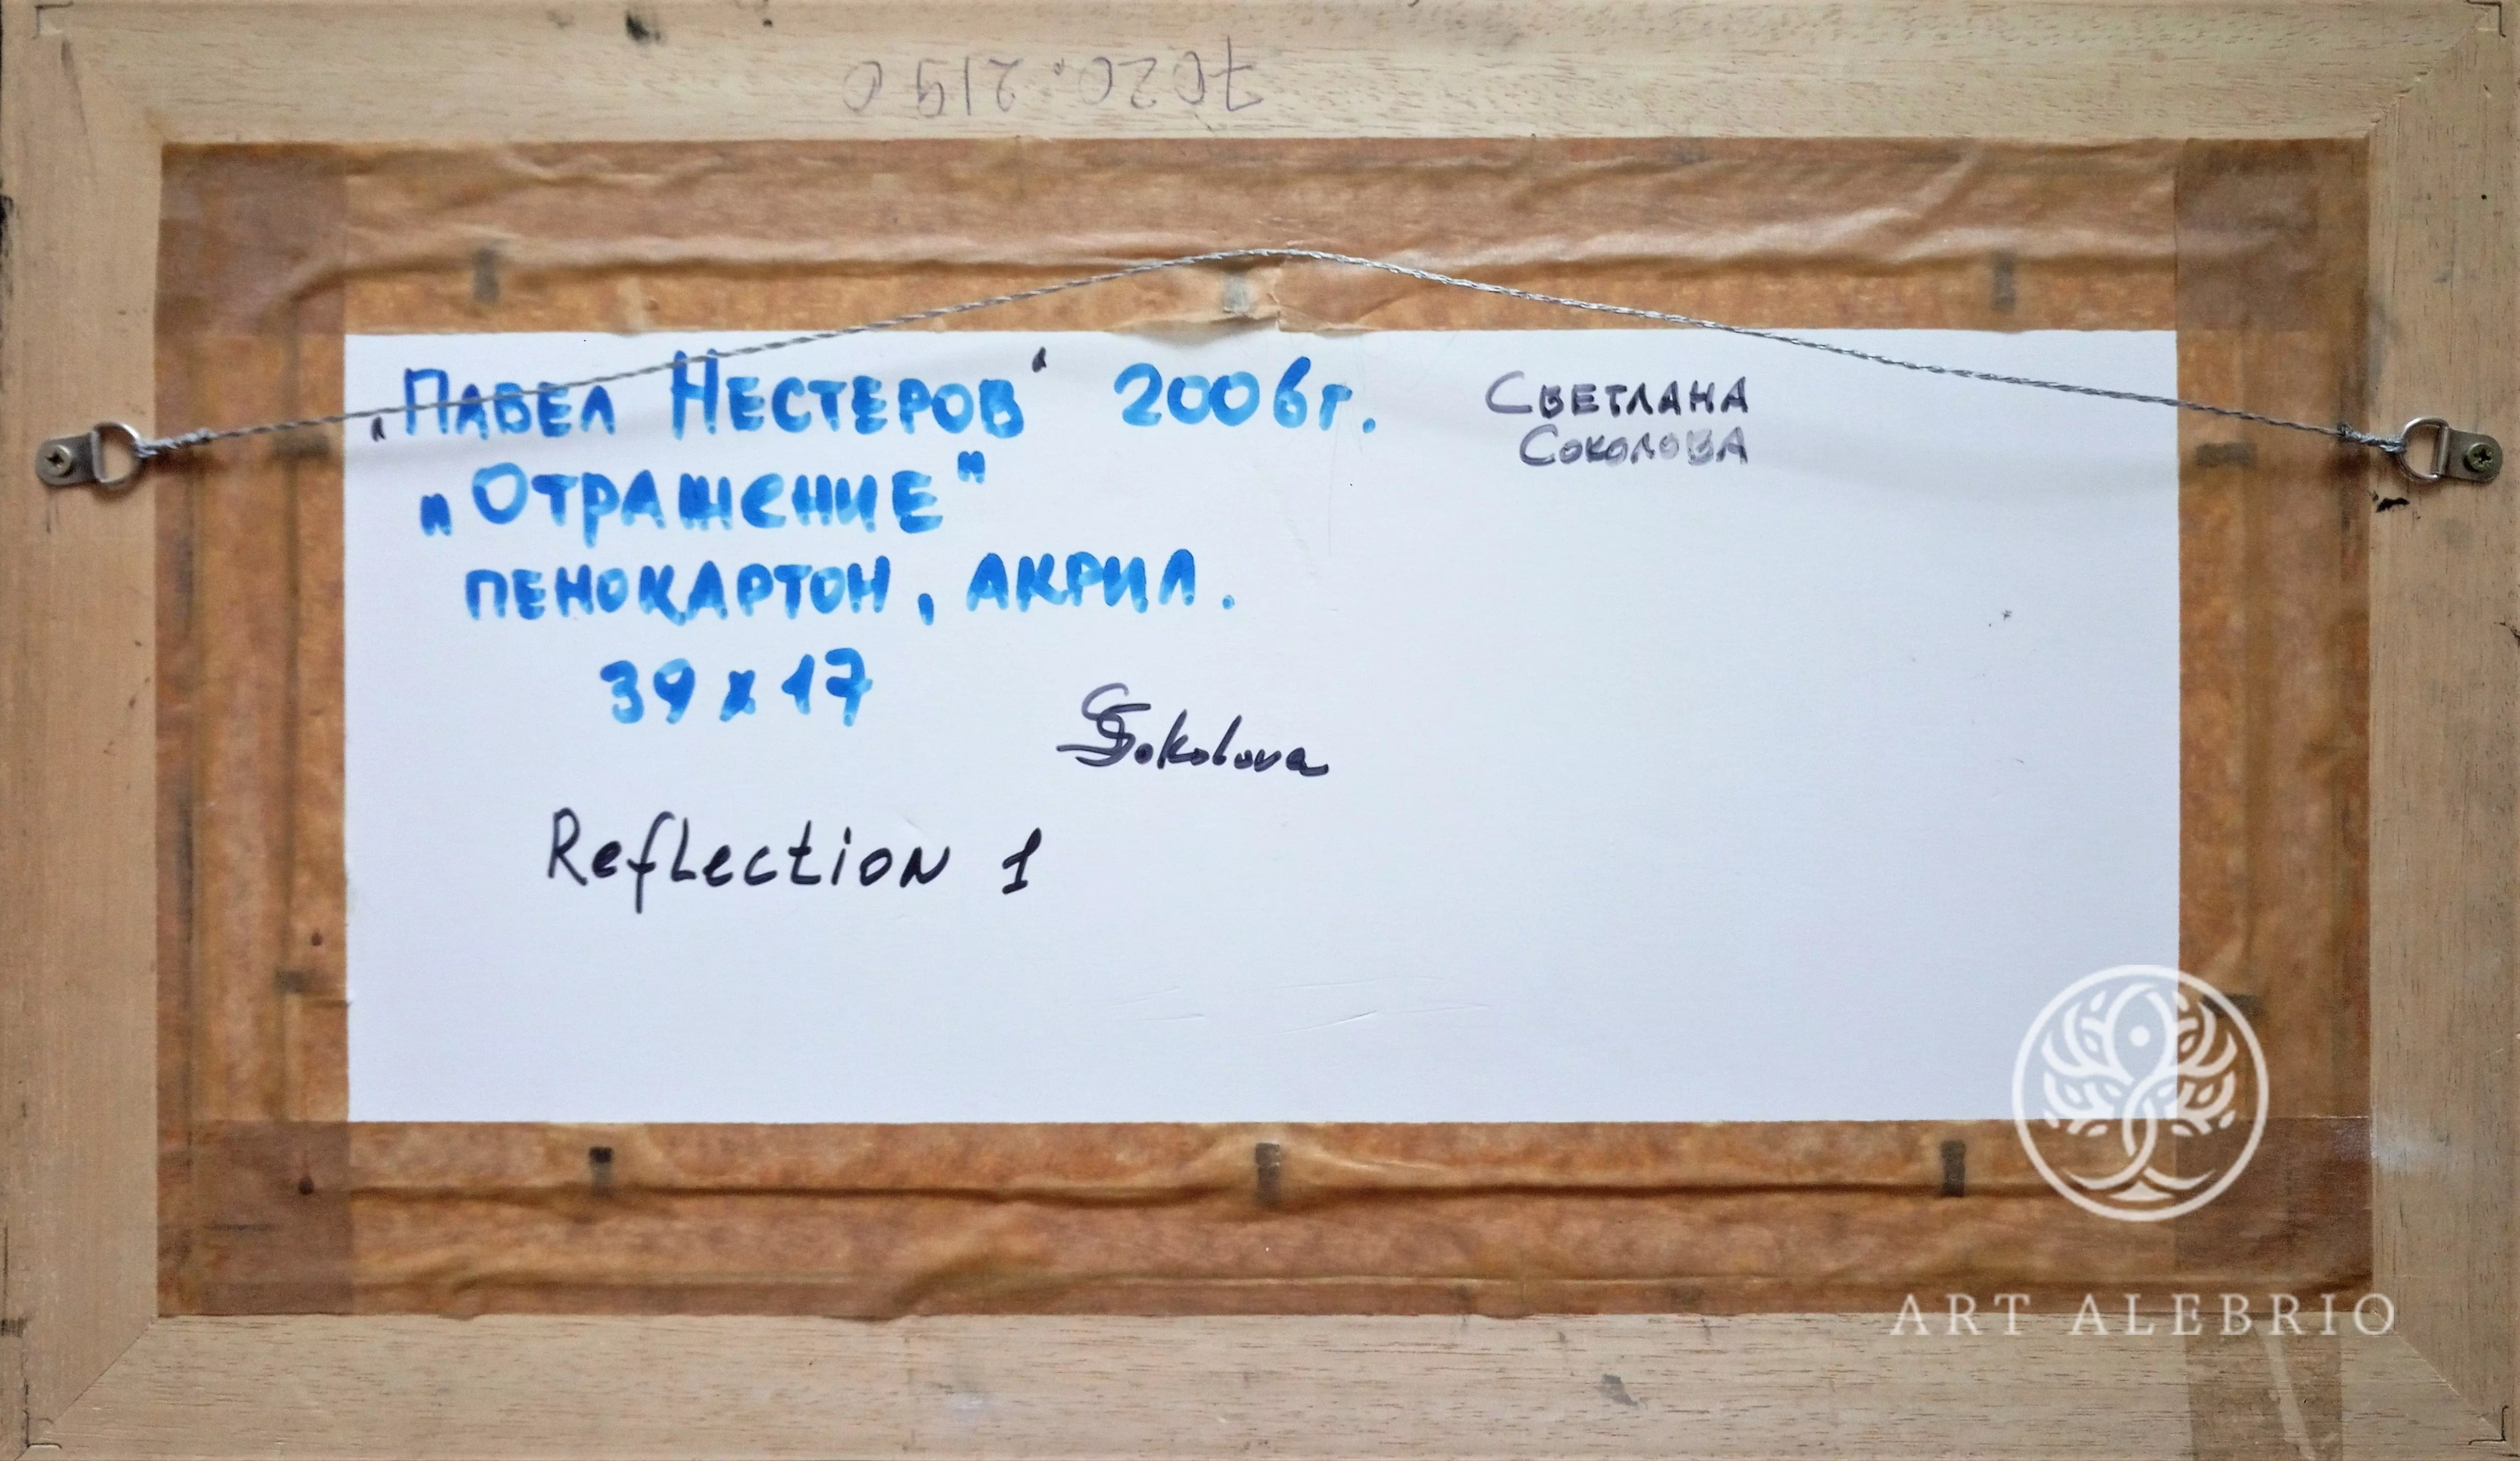 7020.2190
„Павел Нестеров“ 2006г.
Светлана
Соколова
„Отражение"
пенокартон, акрил.
39 х 17
SSokolova
Reflection 1
ART ALEBRIO